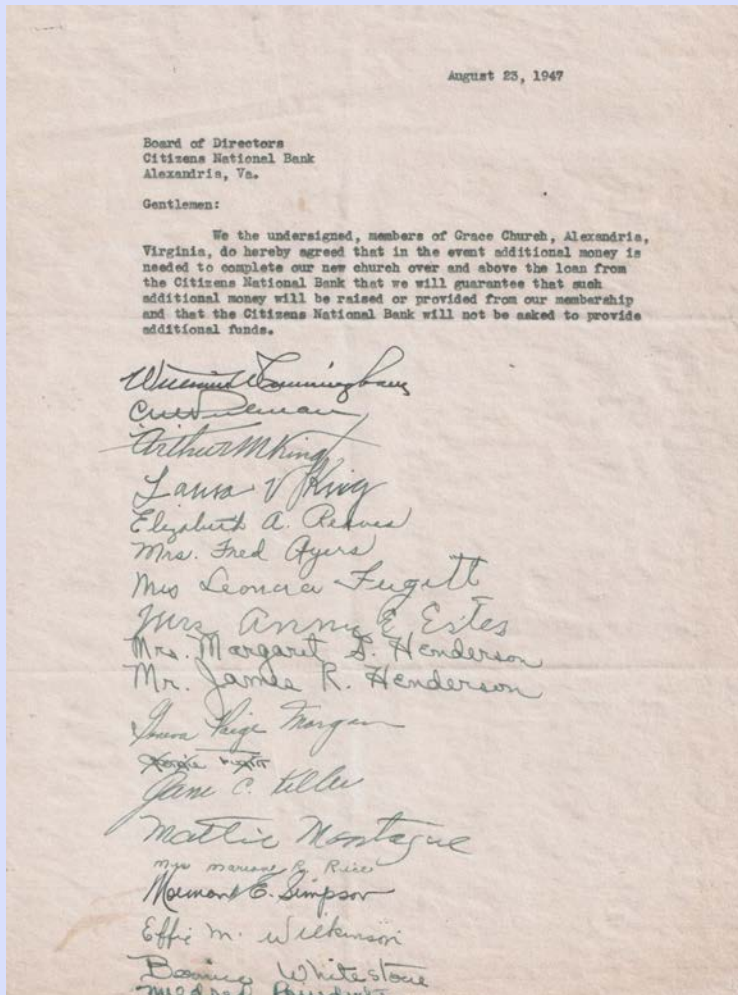 August 23, 1947
Board of Directors
Citizens National Bank
Alexandria, Va.
Gentlemen:
We the undersigned, members of Grace Church, Alexandria,
Virginia, do hereby agreed that in the event additional money is
needed to complete our new church over and above the loan from
the Citizens National Bank that we will guarantee that such
additional money will be raised or provided from our membership
and that the Citizens National Bank will not be asked to provide
additional funds.
Cunningham
Arthur M King
Laura V King
Elizabeth A. Reaves
Mrs. Fred Ayers
Leonora Fugitt
Mrs Annie E Estes
Mrs. Margaret S. Henderson
Mr. James R. Henderson
Paige Morgan
Jane C. Keller
Mattie Montague
Mrs Marion R. Rice
E. Simpson
Effie M. Wilkinson
Whitestone
Mildred